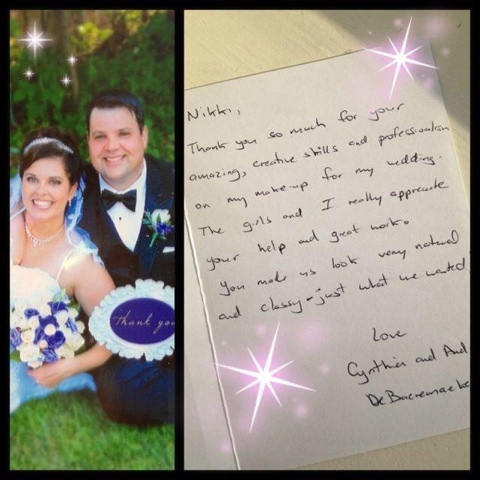 Thank you
Nikki,
Thank you so much for your
amazing, creative skills and professionalism
on my make-up for my wedding.
The girls and I really appreciate
your help and great work.
You made us look very natural
and classy - just what we wanted
Love
Cynthia and
DeBaeremaeke